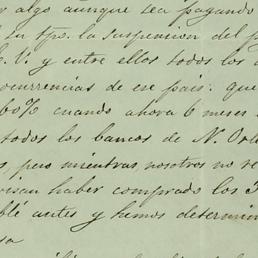 algo aunque sea pagando
su tpo. la suspension del
C. V. y entre ellos todos los
ocurrencias de ese pais: que
60% cuando ahora 6 meses
todos los bancos de N. Orl
pero mientras nosotros no re
visan haber comprado los
blé antes y hemos determin